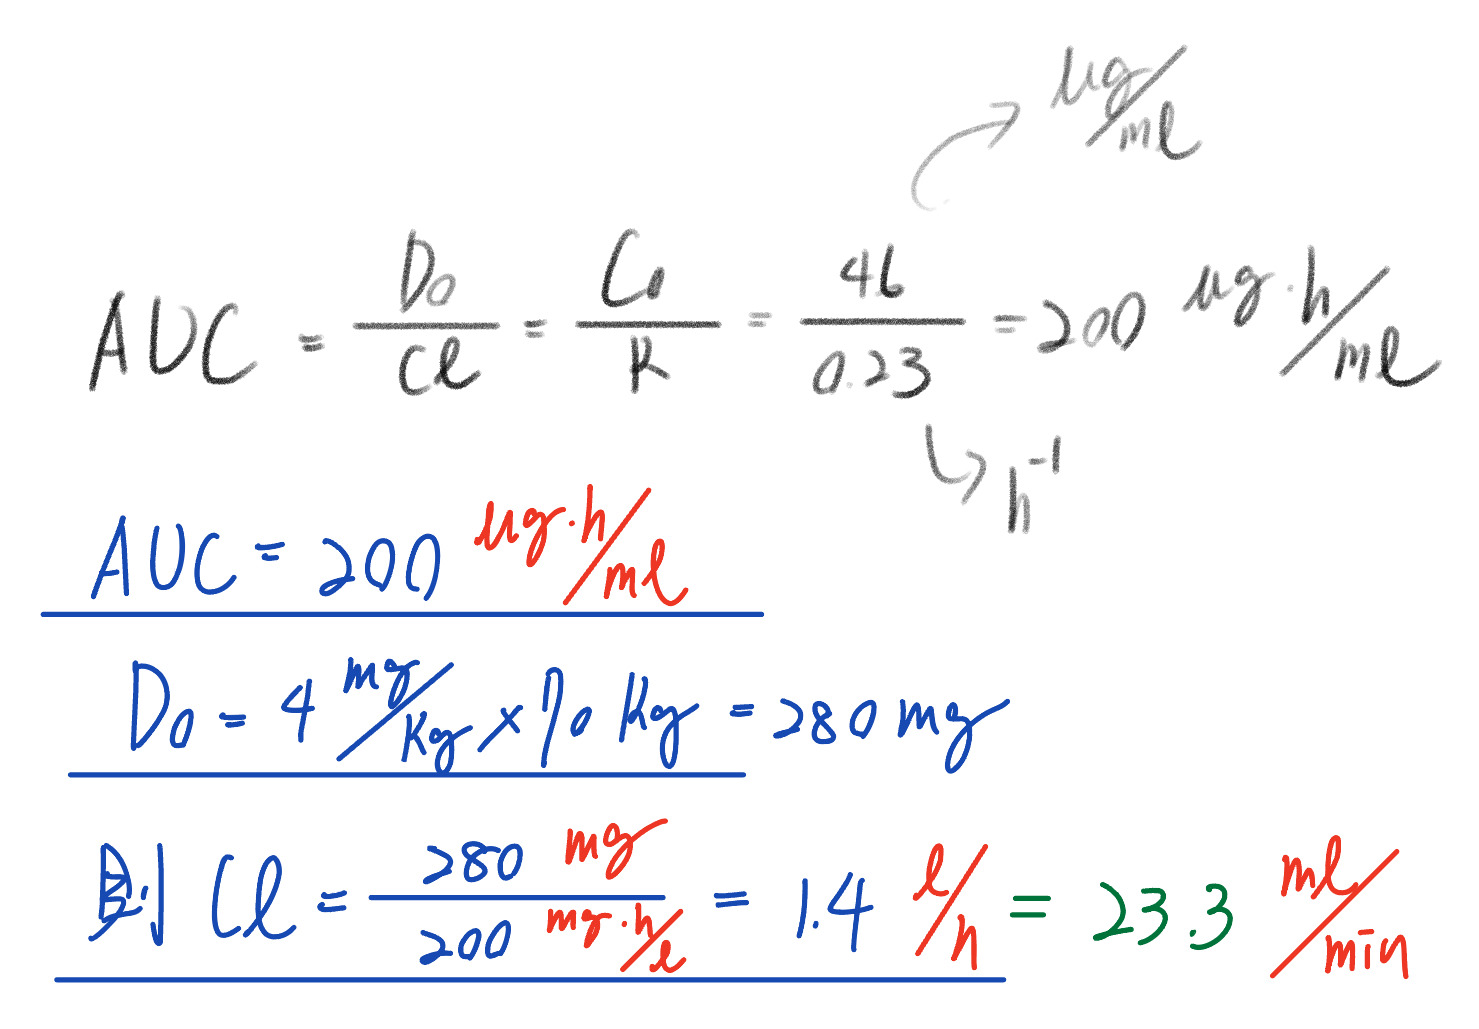 μg/ml
AUC = D₀/Cl = C₀/K = 46/0.23 = 200 μg·h/ml
h⁻¹
AUC = 200 μg·h/ml
D₀ = 4 mg/Kg × 70 Kg = 280 mg
則 Cl = 280 mg / 200 mg·h/l = 1.4 l/h = 23.3 ml/min